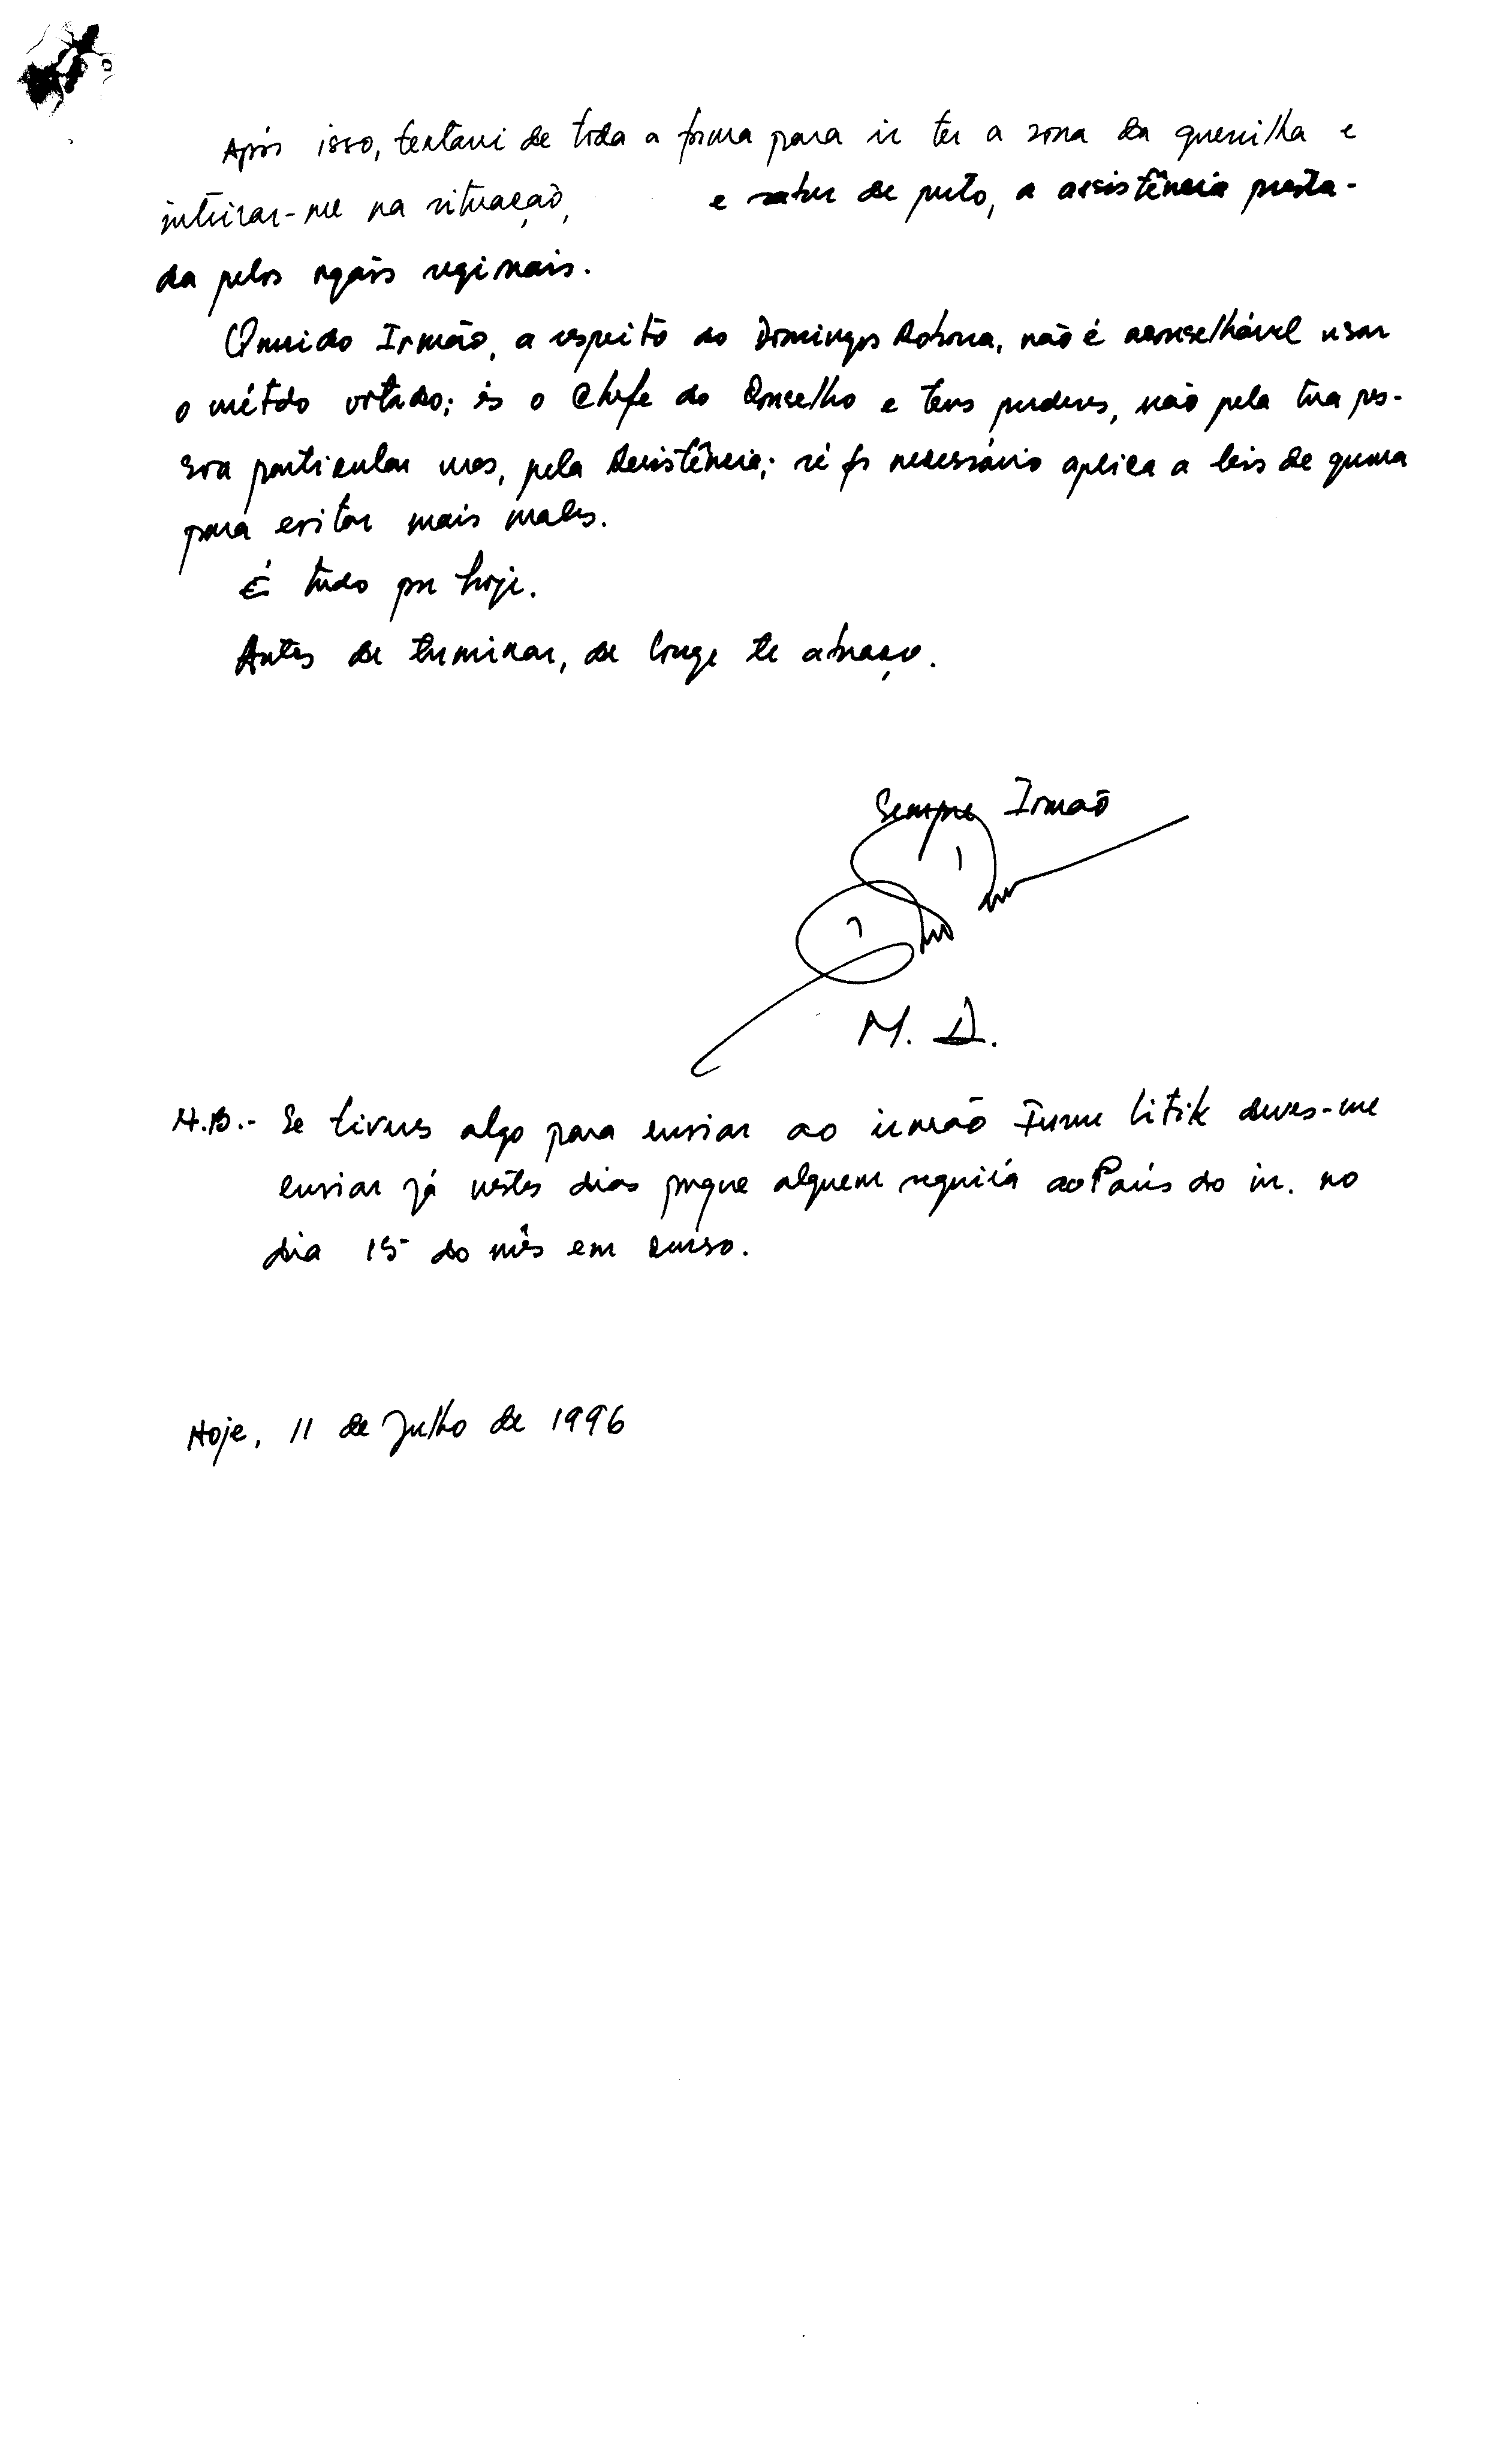 Após isso, tentarei de toda a forma para ir ter a zona da guerrilha e
inteirar-me na situação, e saber de perto, a assistência presta-
da pelos orgãos regionais.
Querido Irmão, a respeito do Domingos, não é aconselhável usar
o método votado; és o Chefe do Conselho e tens poderes, não pela tua pes-
soa particular mas, pela Resistência; sé fôr necessário aplica a leis de guerra
para evitar mais males.
É tudo por hoje.
Antes de terminar, de longe te abraço.
Sempre Irmão
M. D.
N.B.- Se tiveres algo para enviar ao irmão Litik deves-me
enviar já nestes dias porque alguem seguirá ao País do ir. no
dia 15 do mês em curso.
Hoje, 11 de Julho de 1996